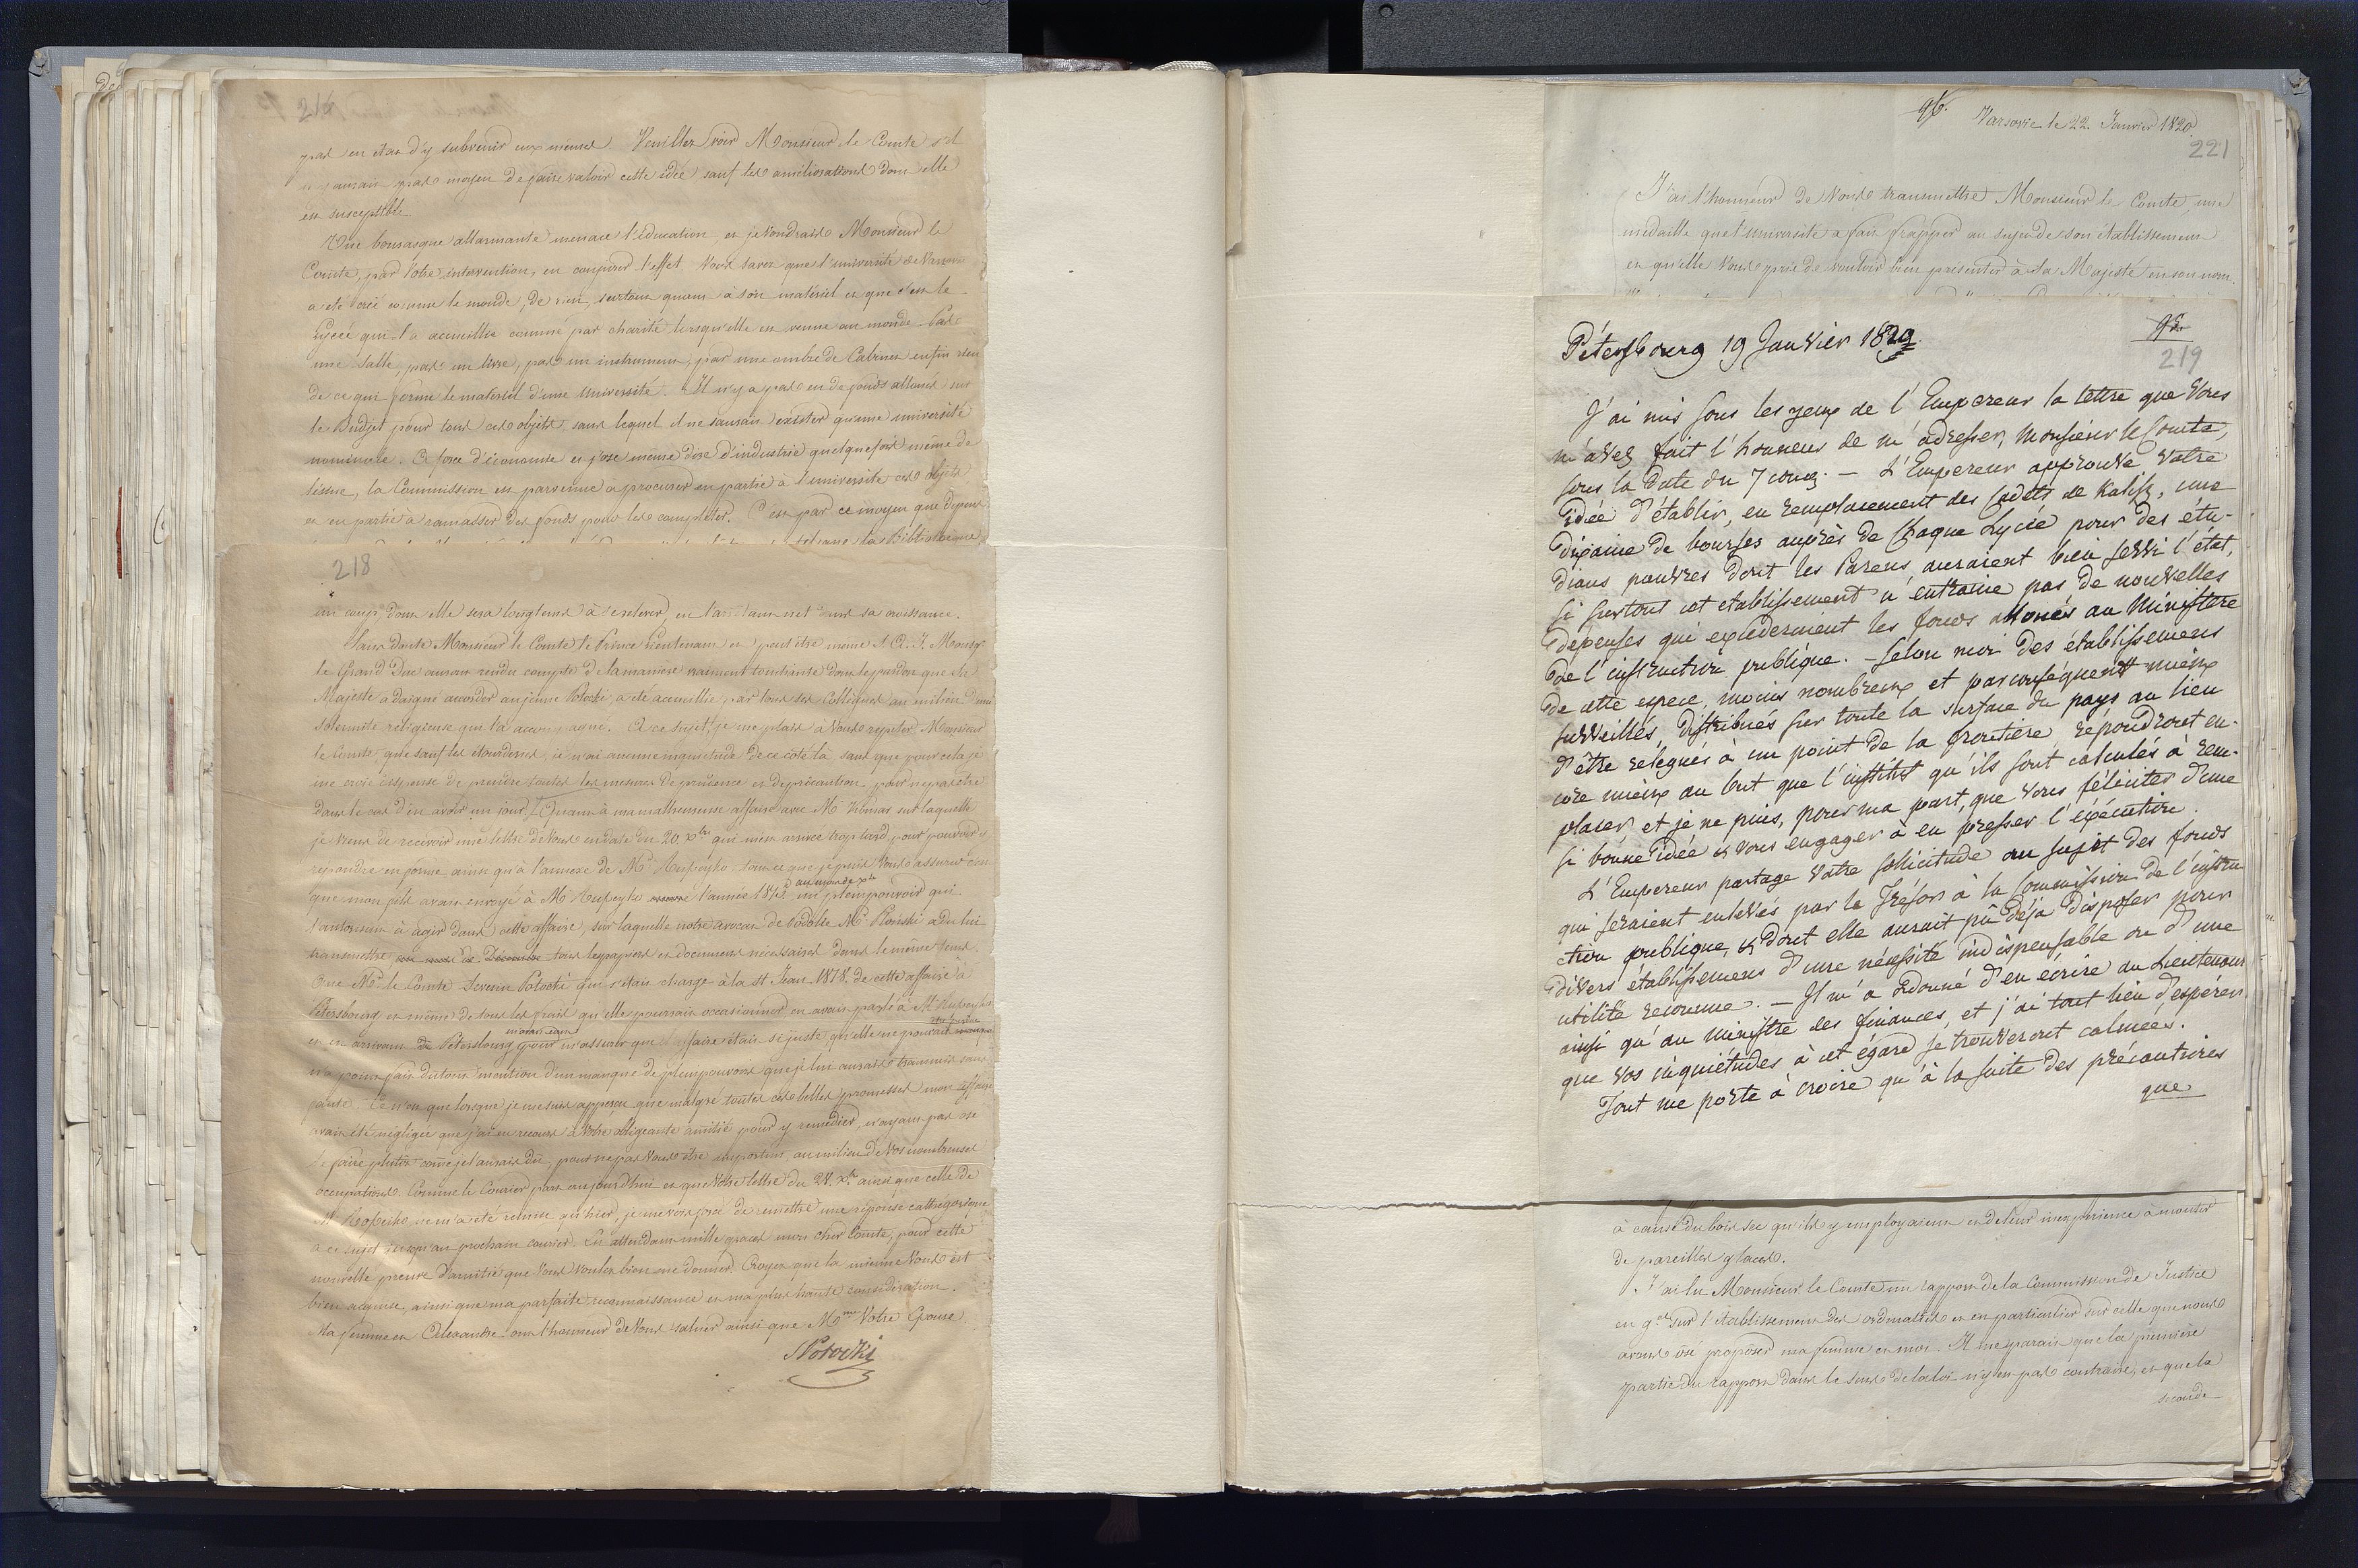 216
pas en état d'y subvenir eux mêmes. Veuillez voir Monsieur le Comte s'il
n'y aurait pas moyen de faire valoir cette idée sauf les améliorations dont elle
est susceptible.
Une bourasque allarmante menace l'éducation, et je voudrais Monsieur le
Comte, par votre intervention, en conjurer l'effet. Vous savez que l'université de Varsovie
a été créé comme le monde, de rien, surtout quant à son matériel et que c'est le
Lycée qui l'a accueillie comme par charité lorsqu'elle est venue au monde. Pas
une salle, pas un livre, pas un instrument, pas une ombre de Cabinet enfin rien
de ce qui forme le matériel d'une université. Il n'y a pas eu de fonds alloués sur
le Budget pour tous ces objets, sans lequel il ne saurait exister qu'une université
nominale. A force d'économie et j'ose même dire d'industrie quelquefois même de
lésine, la Commission est parvenue à procurer en partie à l'université ces objets
et en partie à ramasser des fonds pour les completer. C'est par ce moyen que depuis
la Bibliotheque
218
un coup dont elle sera longtems à se relever, en l'arrêtant net dans sa croissance.
Sans doute Monsieur le Comte le Prince Lieutenant et peut être même S. A. I. Monsgr
le Grand Duc auront rendu compte de la manière vraiment touchante dont le pardon que Sa
Majesté a daigné accorder au jeune Potocki, a été accueillie par tous ses Collègues au milieu d'une
solemnité réligieuse qui l'a accompagné. A ce sujet, je me plais à vous repeter Monsieur
le Comte, que sauf les étourderies, je n'ai aucune inquiétude de ce côté là, sans que pour cela je
me crois dispensé de prendre toutes les mesures de prudence et de précaution, pour ne pas être
dans le cas d'en avoir un jour. Quant à ma malheureuse affaire avec Mr sur laquelle
je viens de recevoir une lettre de vous en date du 20 Xbre qui m'est arrivée trop tard pour pouvoir y
répondre en forme ainsi qu'à l'annexe de Mr tout ce que je puis vous assurer c'est
que mon fils avait envoyé à Mr l'année 1818 au mois de Xbre un pleinpouvoir qui
l'autorisait à agir dans cette affaire, sur laquelle notre avocat de Podolie Mr a du lui
transmettre au mois de Décembre tous les papiers et documens nécessaires dans le même tems.
Que Mr le Comte Severin Potocki qui s'était chargé à la St Jean 1818 de cette affaire à
Petersbourg et même de tous les frais qu'elle pourrait occasionner en avait parlé à Mr
et en arrivant de Petersbourg pour m'assurer que l'affaire était si juste qu'elle ne pouvait
n'a point fait du tout mention d'un manque de pleinpouvoir que je lui aurais transmis sans
pause. Ce n'est que lorsque je me suis apperçu que malgré toutes ces belles promesses mon affaire
avait été négligée que j'ai eu recours à votre obligeante amitié pour y remédier, n'ayant pas osé
le faire plutôt comme je l'aurais dû, pour ne pas vous être importun, au milieu de vos nombreuses
occupations. Comme le Courier part aujourd'hui et que votre lettre du 24. Xbre ainsi que celle de
M. ne m'a été remise qu'hier, je me vois forcé de remettre une réponse cathégorique
à ce sujet jusqu'au prochain courier. En attendant mille graces mon cher Comte, pour cette
nouvelle preuve d'amitié que vous voulez bien me donner. Croyez que la mienne vous est
bien acquise, ainsi que ma parfaite reconnaissance et ma plus haute considération.
Ma femme et Alexandre ont l'honneur de vous saluer ainsi que Mme Votre Epouse.
SPotocki
96.
Varsovie le 22 Janvier 1820.
221
J'ai l'honneur de vous transmettre Monsieur le Comte, une
médaille que l'université a fait frapper au sujet de son établissement
et qu'elle vous prie de vouloir bien présenter à Sa Majesté en son nom.
Pétersbourg 19 Janvier 1820.
95.
219
J'ai mis sous les yeux de l'Empereur la lettre que Vous
m'avez fait l'honneur de m'adresser, Monsieur le Comte,
sous la date du 7 cour. — L'Empereur approuve votre
idée d'établir, en remplacement des Cadets de Kalisz, une
dixaine de bourses auprès de chaque Lycée pour des étu-
dians pauvres dont les Parens auraient bien servi l'état,
si surtout cet etablissement n'entraine pas de nouvelles
depenses qui excederaient les fonds alloués au Ministère
de l'instruction publique. — Selon moi des établissemens
de cette espece, moins nombreux et par conséquent mieux
surveillés, distribués sur toute la surface du pays au lieu
d'être relegués à un point de la frontière répondront en-
core mieux au but que l'institut qu'ils sont calculés à rem-
placer, et je ne puis, pour ma part, que vous féliciter d'une
si bonne idée et vous engager à en presser l'exécution.
L'Empereur partage votre sollicitude au sujet des fonds
qui seraient enlevés par le Trésor à la Commission de l'instru
ction publique, et dont elle aurait pû déja disposer pour
divers établissemens d'une nécessité indispensable ou d'une
utilité reconnue. — Il m'a ordonné d'en écrire au Lieutenant
ainsi qu'au ministre des finances, et j'ai tout lieu d'espérer
que vos inquiétudes à cet égard se trouveront calmées.
Tout me porte à croire qu'à la suite des précautions
que
à cause du bois sec qu'ils y employaient et de leur inexpérience à monter
de pareilles glaces.
J'ai lu Monsieur le Comte un rapport de la Commission de Justice
en gal sur l'établissement des ordinaties et en particulier sur celle que nous
avons osé proposer ma femme et moi. Il me parait que la première
partie du rapport dans le sens de la loi n'y est pas contraire, et que la
seconde